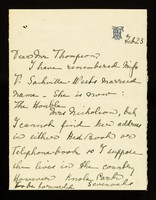 Feb 23
Dear Mr Thompson,
I have remembered Miss
V. Sackville-West's married
name - She is now :
The Hon'ble
Mrs Nicholson, but
I cannot find her address
in either Red Book or
Telephone book so I suppose
she lives in the country
However Knole Park
Sevenoaks